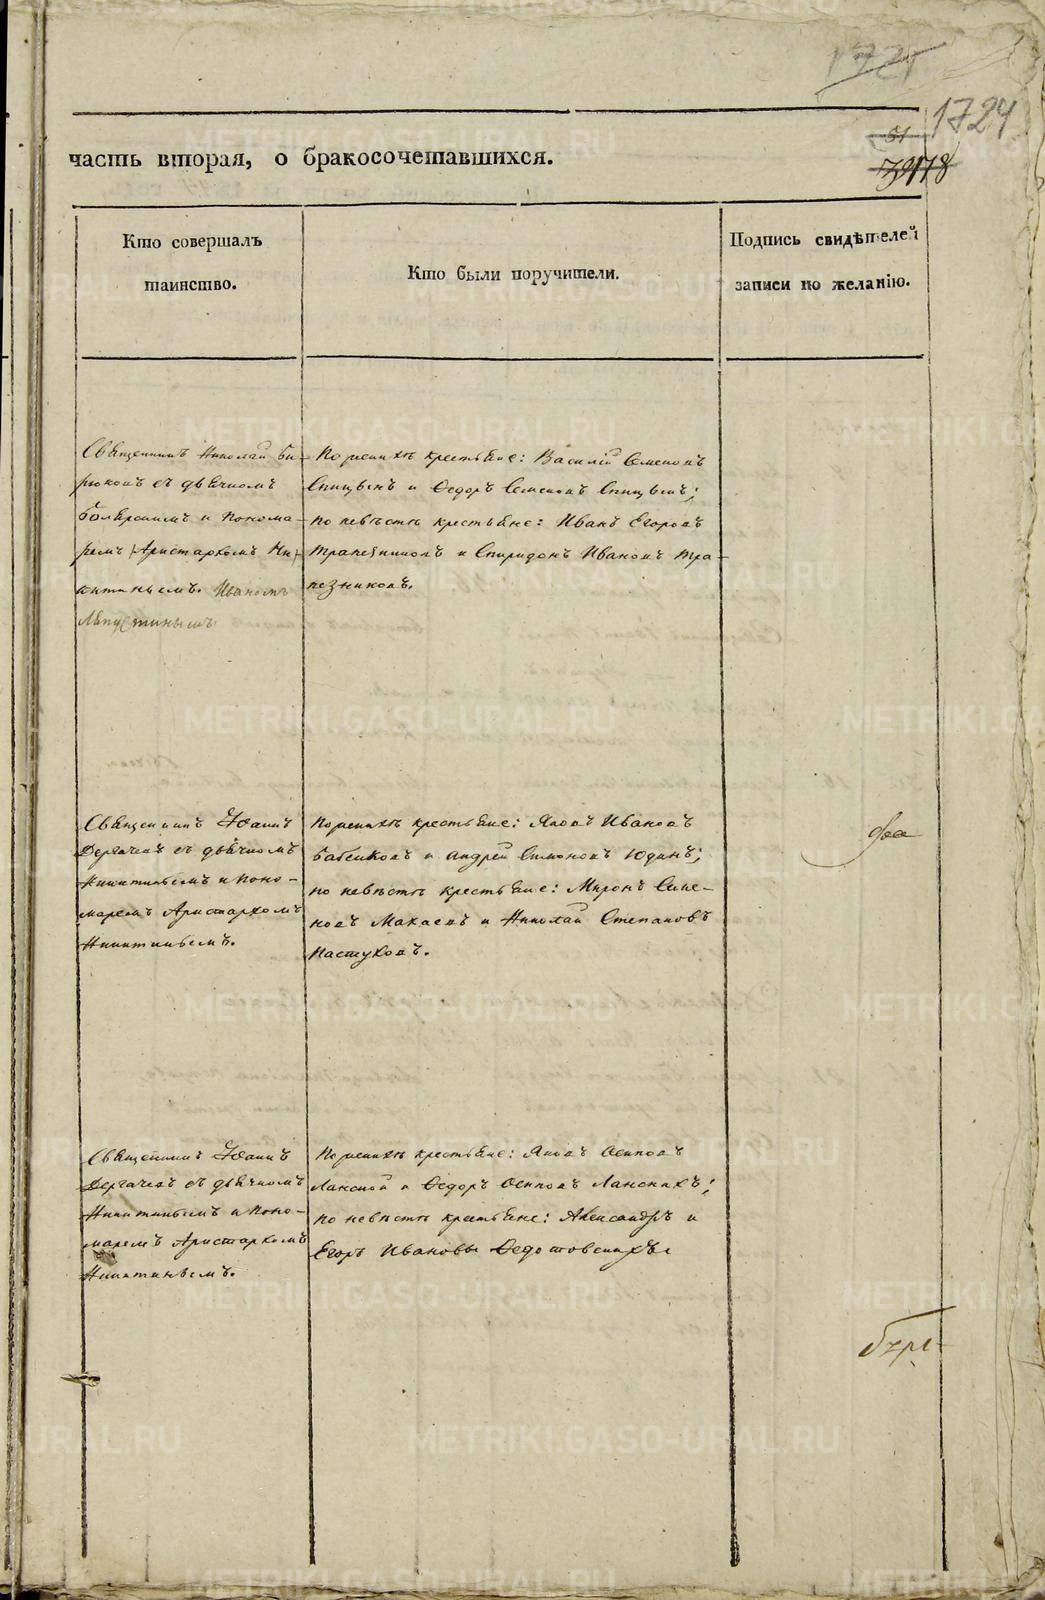 1721
1724
51
178
часть вторая, о бракосочетавшихся.
Кто совершалъ
таинство.
Кто были поручители.
Подпись свидѣтелей
записи по желанію.
Священникъ Николай Би-
рюковъ съ дьячкомъ
и понома-
ремъ Аристархомъ Ни-
китинымъ. Иваномъ
По женихѣ крестьяне: Василій Семеновъ
Спицынъ и Ѳедоръ Семеновъ Спицынъ;
по невѣстѣ крестьяне: Иванъ Егоровъ
Трапезниковъ и Спиридонъ Ивановъ Тра-
пезниковъ.
Священникъ Іоаннъ
Дергачевъ съ дьячкомъ
Никитинымъ и поно-
маремъ Аристархомъ
Никитинымъ.
По женихѣ крестьяне: Яковъ Ивановъ
Бабенковъ и Андрей Симоновъ Юдинъ;
по невѣстѣ крестьяне: Миронъ Семе-
новъ Макаевъ и Николай Степановъ
Пастуховъ.
Священникъ Іоаннъ
Дергачевъ съ дьячкомъ
Никитинымъ и поно-
маремъ Аристархомъ
Никитинымъ.
По женихѣ крестьяне: Яковъ Осиповъ
Ланской и Ѳедоръ Осиповъ Ланскихъ;
по невѣстѣ крестьяне: Александръ и
Егоръ Ивановы Ѳедотовскихъ.
METRIKI.GASO-URAL.RU